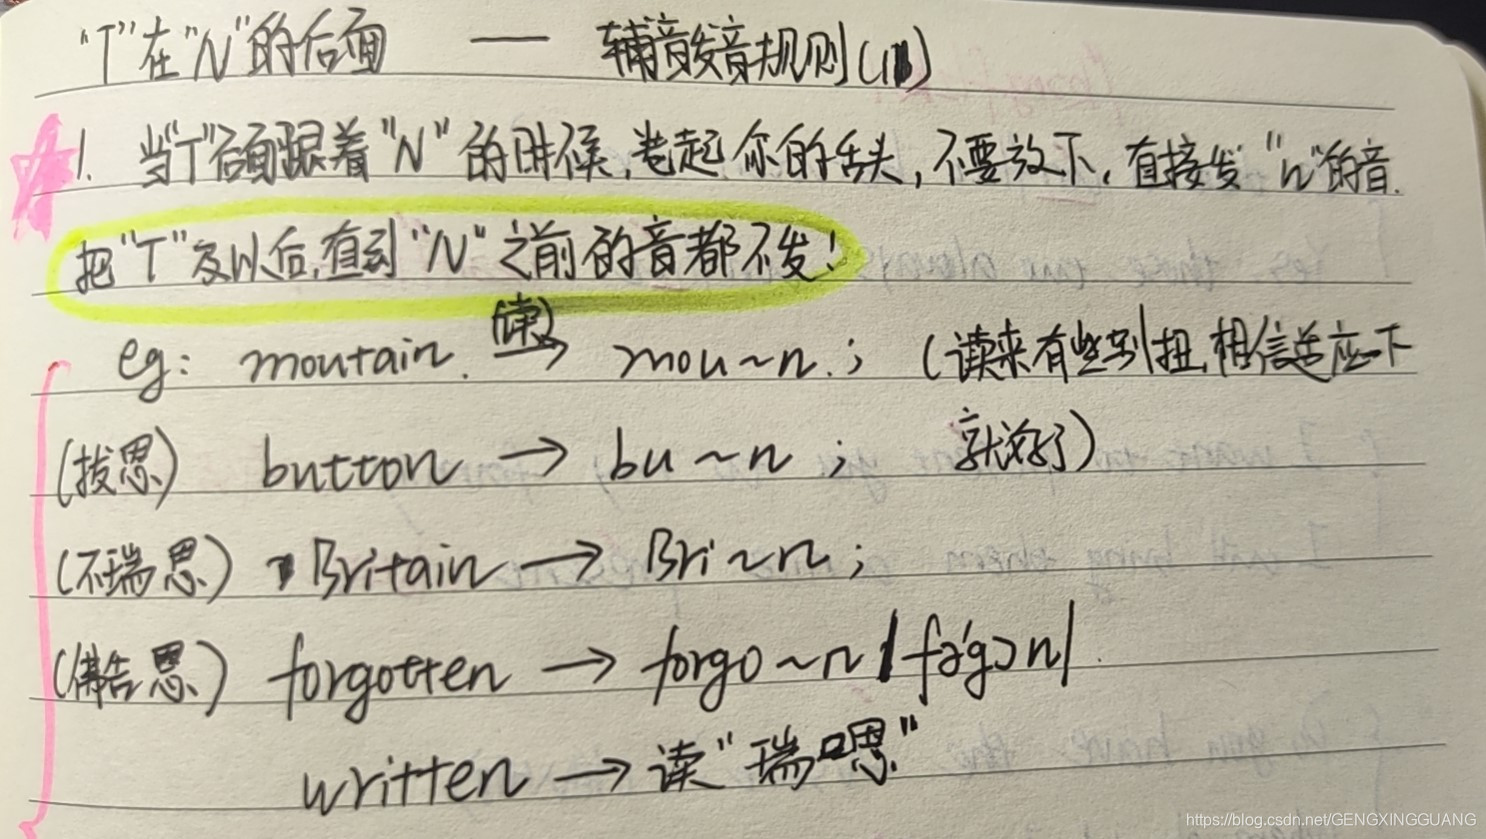 "T"在"N"的后面 — 辅音发音规则(1)
1. 当"T"后面跟着"N"的时候,卷起你的舌头,不要放下,直接发"n"的音.
把"T"及以后,直到"N"之前的音都不发!
eg: moutain. (读)→ mou~n.; (读来有些别扭,相信适应一下
(拔恩) button → bu~n; 就好了)
(不瑞恩) Britain → Bri~n;
(佛告恩) forgotten → forgo~n /fə'gɔn/.
written → 读"瑞嗯"
https://blog.csdn.net/GENGXINGGUANG